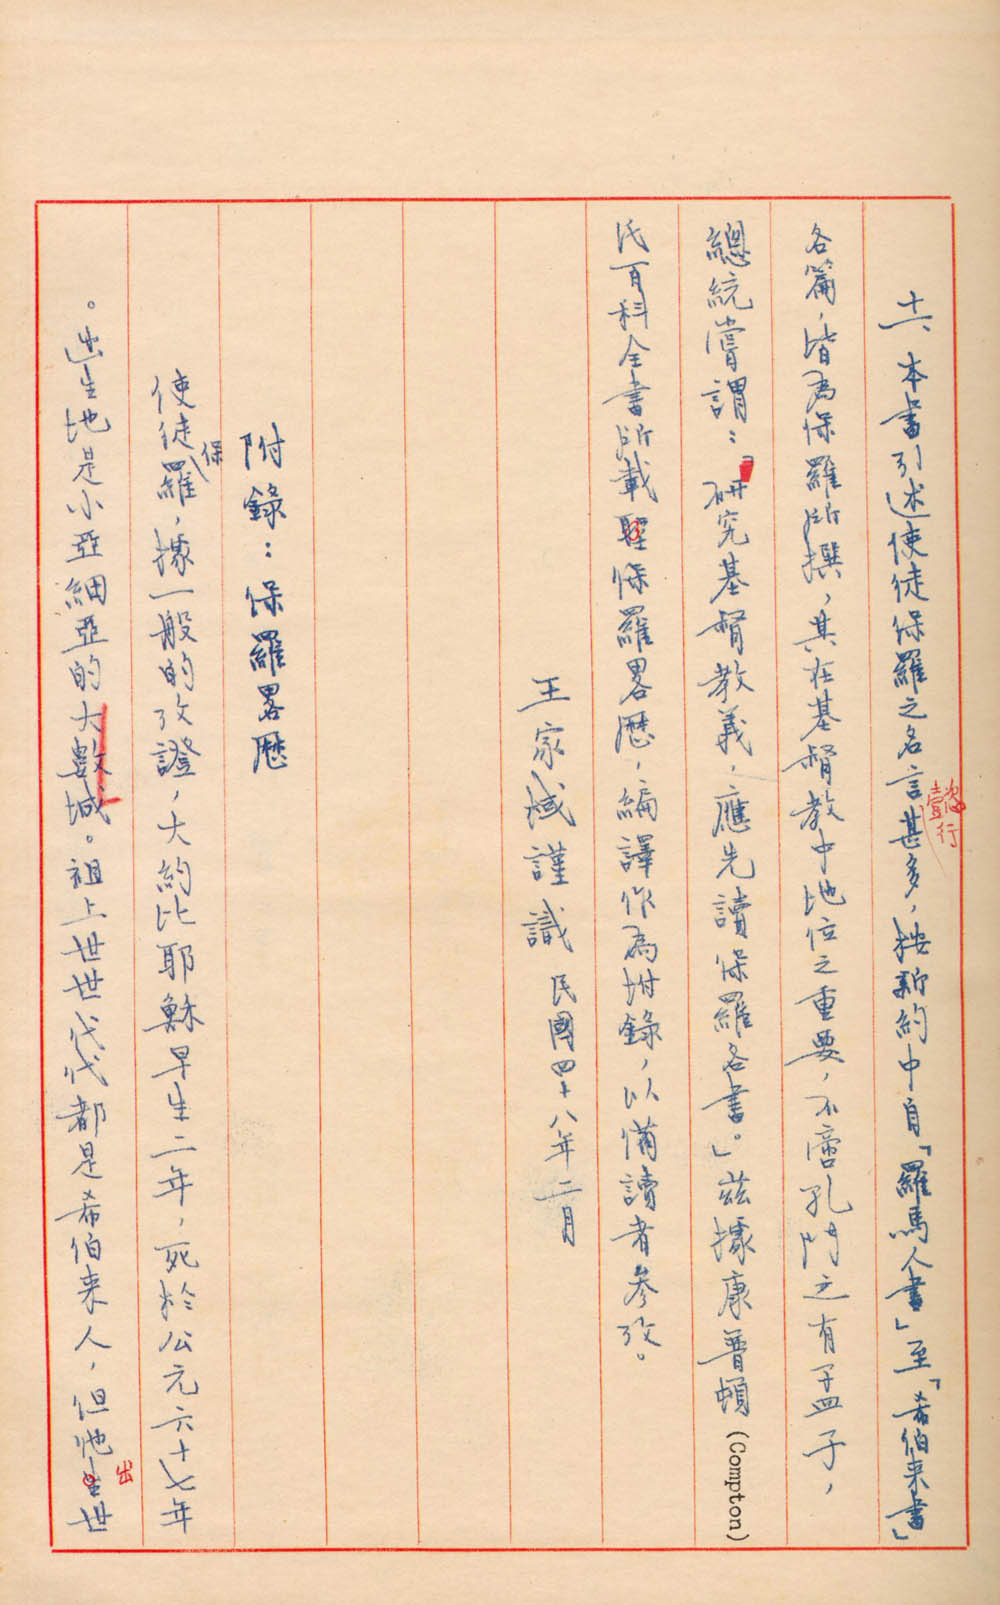 十一、本書引述使徒保羅之名言甚多，按新約中自「羅馬人書」至「希伯來書」
壹行
各篇，皆為保羅所撰，其在基督教中地位之重要，不啻孔門之有孟子，
總統嘗謂：「研究基督教義，應先讀保羅各書。」茲據康普頓(Compton)
氏百科全書所載聖保羅畧歷，編譯作為附錄，以備讀者參攷。
王家棫謹識 民國四十八年二月
附錄：保羅畧歷
使徒保羅，據一般的攷證，大約比耶穌早生二年，死於公元六十七年
。出生地是小亞細亞的大數城。祖上世世代代都是希伯來人，但他生世
出